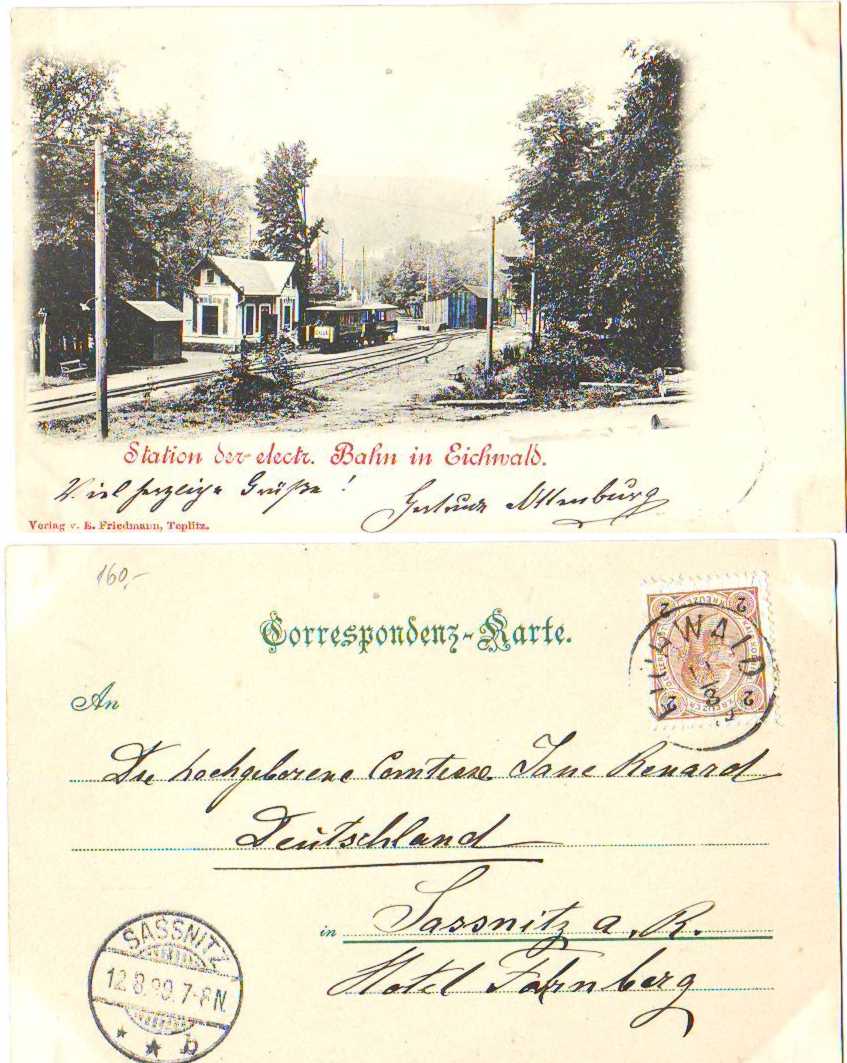 Station der electr. Bahn in Eichwald.
Viel herzliche Grüße!
Gertrude Altenburg
Verlag v. E. Friedmann, Teplitz.
160,-
Correspondenz-Karte.
2 2
2 2
EICHWALD
An
Die hochgeborene Comtesse Jane Renard
Deutschland
in Sassnitz a. R.
Hotel Fahrnberg
SASSNITZ
12.8.99.7-8N.
* * b